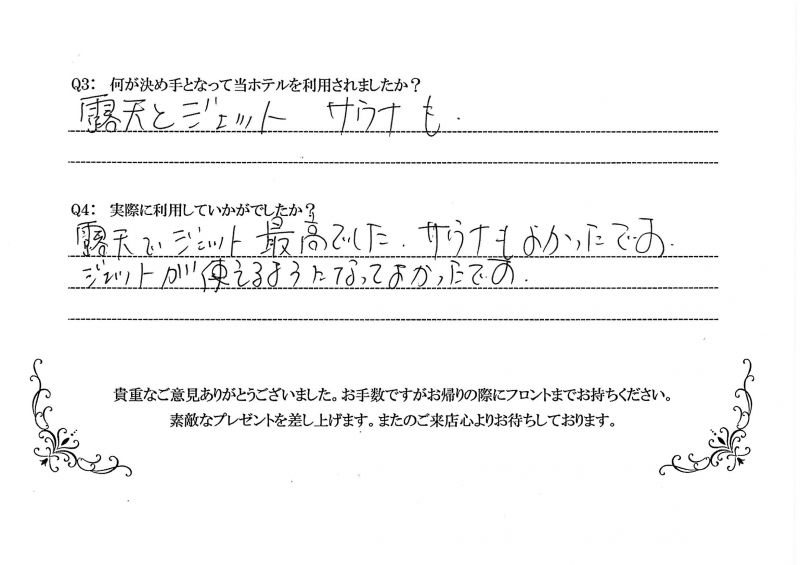 Q3: 何が決め手となって当ホテルを利用されましたか?
露天とジェット サウナも.
Q4: 実際に利用していかがでしたか?
露天でジェット最高でした.サウナもよかったです.
ジェットが使えるようになってよかったです.
貴重なご意見ありがとうございました。お手数ですがお帰りの際にフロントまでお持ちください。
素敵なプレゼントを差し上げます。またのご来店心よりお待ちしております。